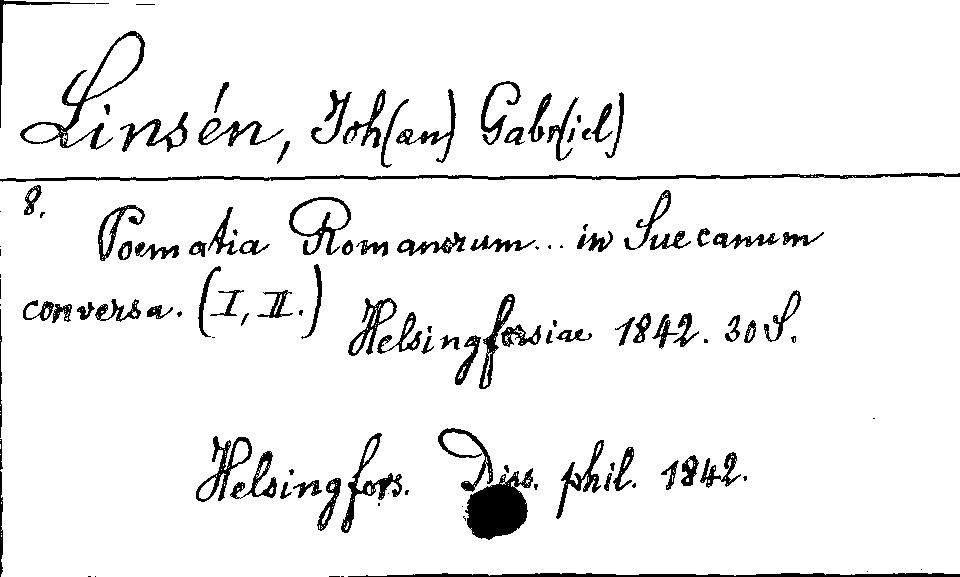 Linsén, Joh(an) Gabr(iel)
8.
Poematia Romanorum... in Suecanum
conversa. (I, II.)
Helsingforsiae 1842. 30 S.
Helsingfors. Diss. phil. 1842.